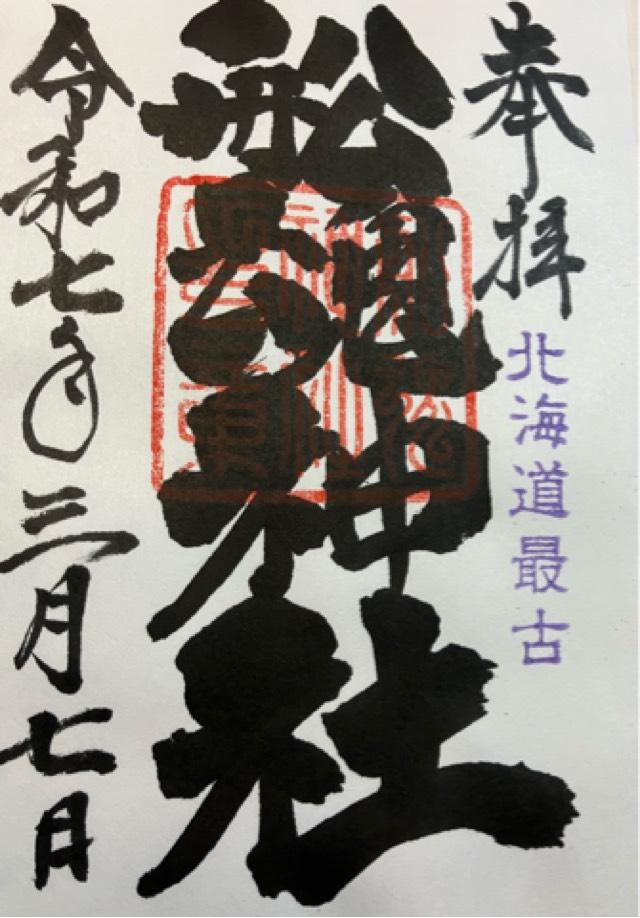 奉拝
北海道最古
船魂神社
令和七年三月七日